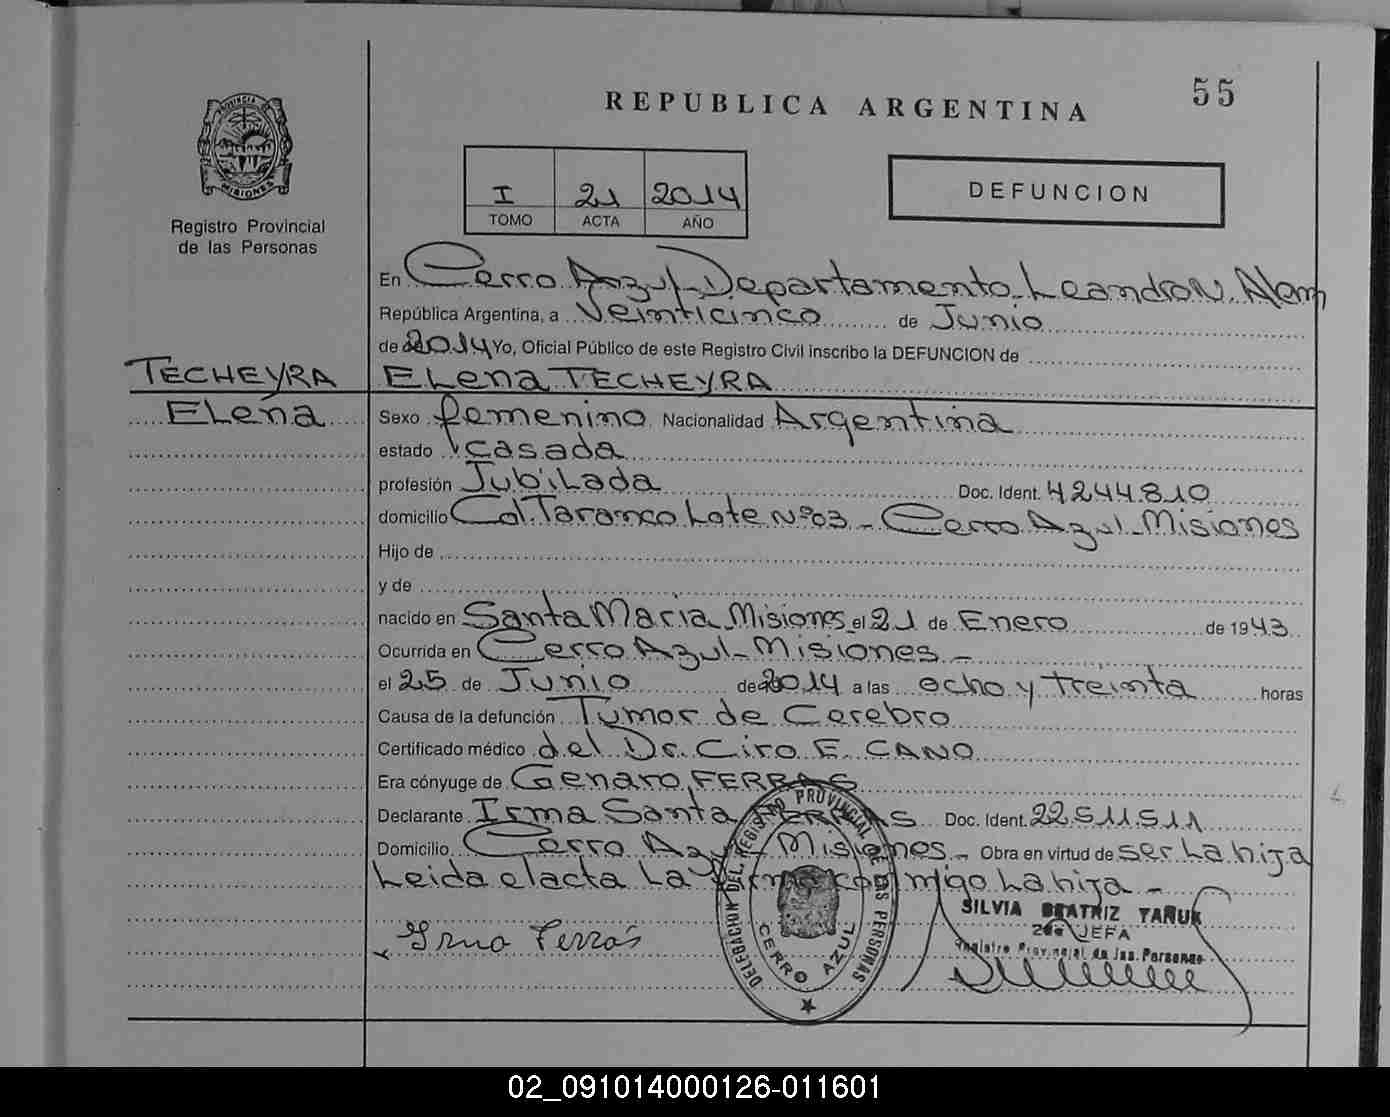 55
REPUBLICA ARGENTINA
PROVINCIA DE
MISIONES
Registro Provincial
de las Personas
I 21 2014
TOMO ACTA AÑO
DEFUNCION
En Cerro Azul - Departamento Leandro N. Alem
República Argentina, a Veinticinco de Junio
de 2014 Yo, Oficial Público de este Registro Civil inscribo la DEFUNCION de
TECHEYRA Elena TECHEYRA
Elena Sexo femenino Nacionalidad Argentina
estado casada
profesión Jubilada Doc. Ident. 4244.810
domicilio Col. Taranco Lote Nº 03 - Cerro Azul - Misiones
Hijo de
y de
nacido en Santa Maria Misiones el 21 de Enero de 1943
Ocurrida en Cerro Azul - Misiones -
el 25 de Junio de 2014 a las ocho y treinta horas
Causa de la defunción Tumor de Cerebro
Certificado médico del Dr. Ciro E. CANO
Era cónyuge de Genaro FERRAS
Declarante Irma Santa FERRAS Doc. Ident. 22.511.511
Domicilio Cerro Azul Misiones - Obra en virtud de ser La hija
Leida el acta La firma conmigo La hija -
DELEGACION DEL REGISTRO PROVINCIAL DE LAS PERSONAS
CERRO AZUL
SILVIA BEATRIZ YAÑUK
2da JEFA
Registro Provincial de las Personas
02_091014000126-011601